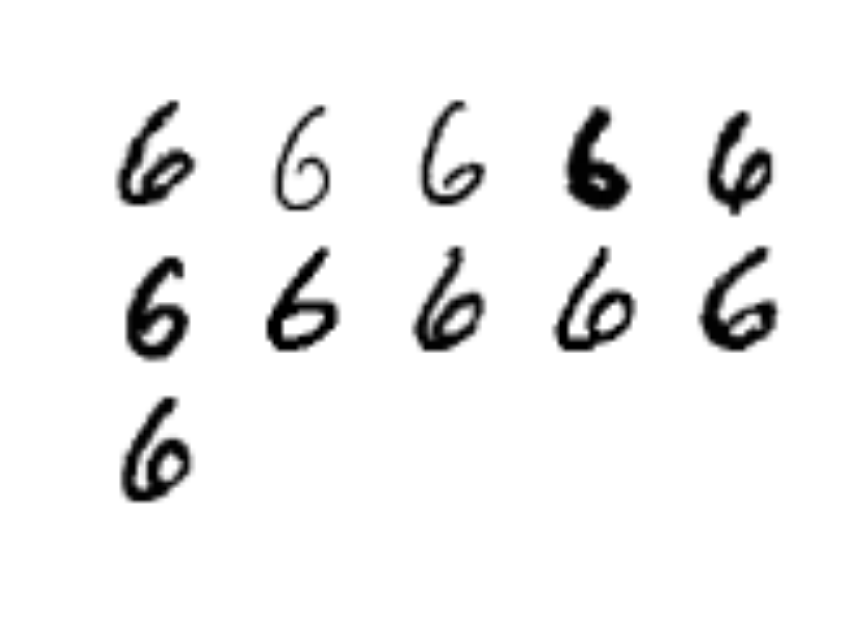 6 6 6 6 6
6 6 6 6 6
6